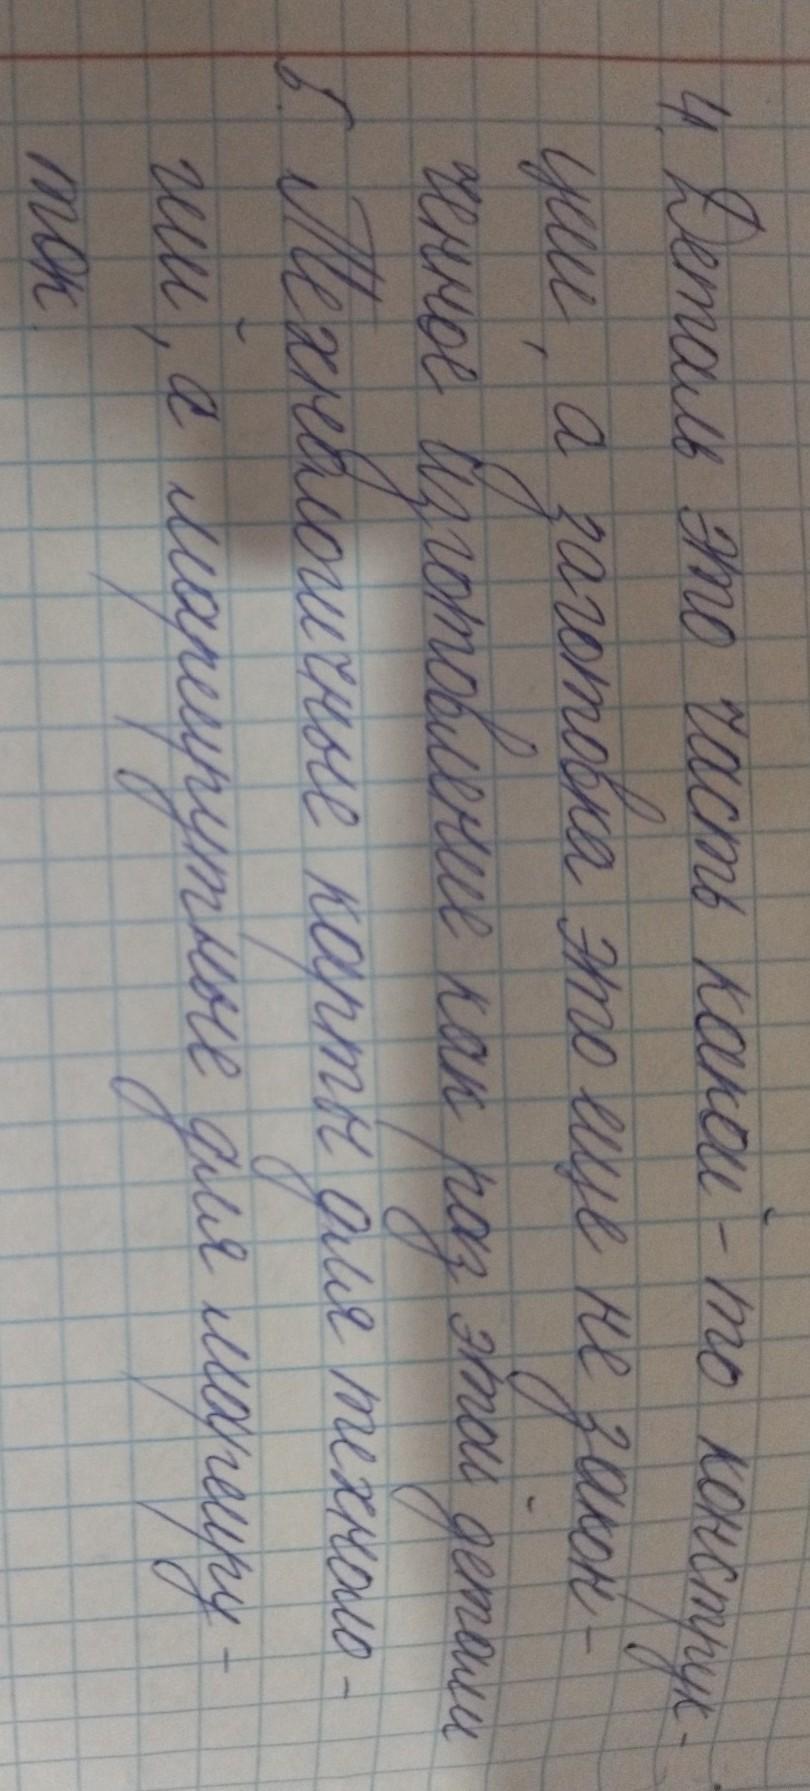 4. Деталь это часть какой-то конструк-
ции, а заготовка это еще не закон-
ченное изготовление как раз этой детали
5. Технологичные карты для техноло-
гий, а маршрутные для маршру-
ток.